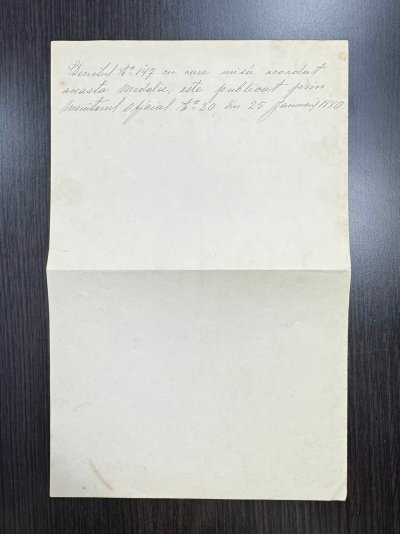 Decretul No 147 cu care mi să acordat
aceasta medalie, este publicat prin
Monitorul Oficial No 20 din 25 Januarij 1880